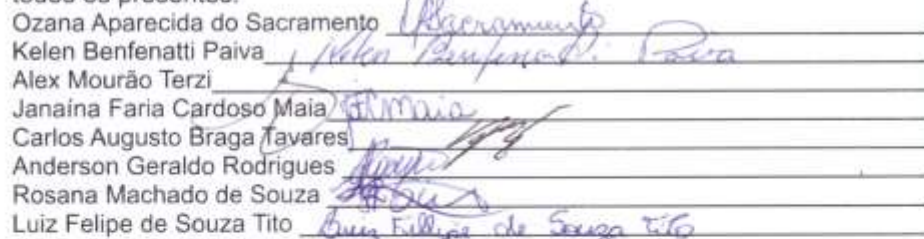 todos os presentes.
Ozana Aparecida do Sacramento OSacramento
Kelen Benfenatti Paiva Kelen Benfenatti Paiva
Alex Mourão Terzi
Janaína Faria Cardoso Maia JFCMaia
Carlos Augusto Braga Tavares
Anderson Geraldo Rodrigues
Rosana Machado de Souza
Luiz Felipe de Souza Tito Luiz Fillipe de Souza Tito